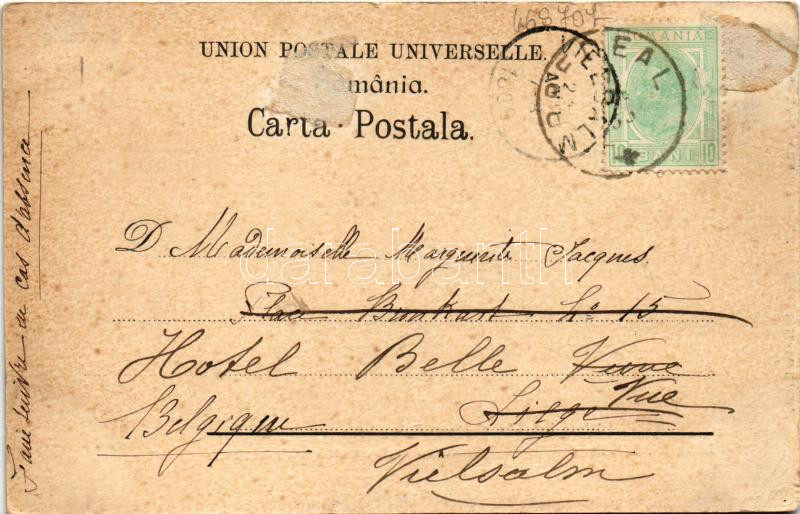 468704
UNION POSTALE UNIVERSELLE.
mânia.
Carta Postala.
ROMANIA
10 BANI 10
VIELSALM
D Mademoiselle Marguerite Jacques.
Place Bronkart No 15
Hotel Belle Vue
Belgique Liége
Vielsalm
Faire suivre en cas d'absence
darabanth